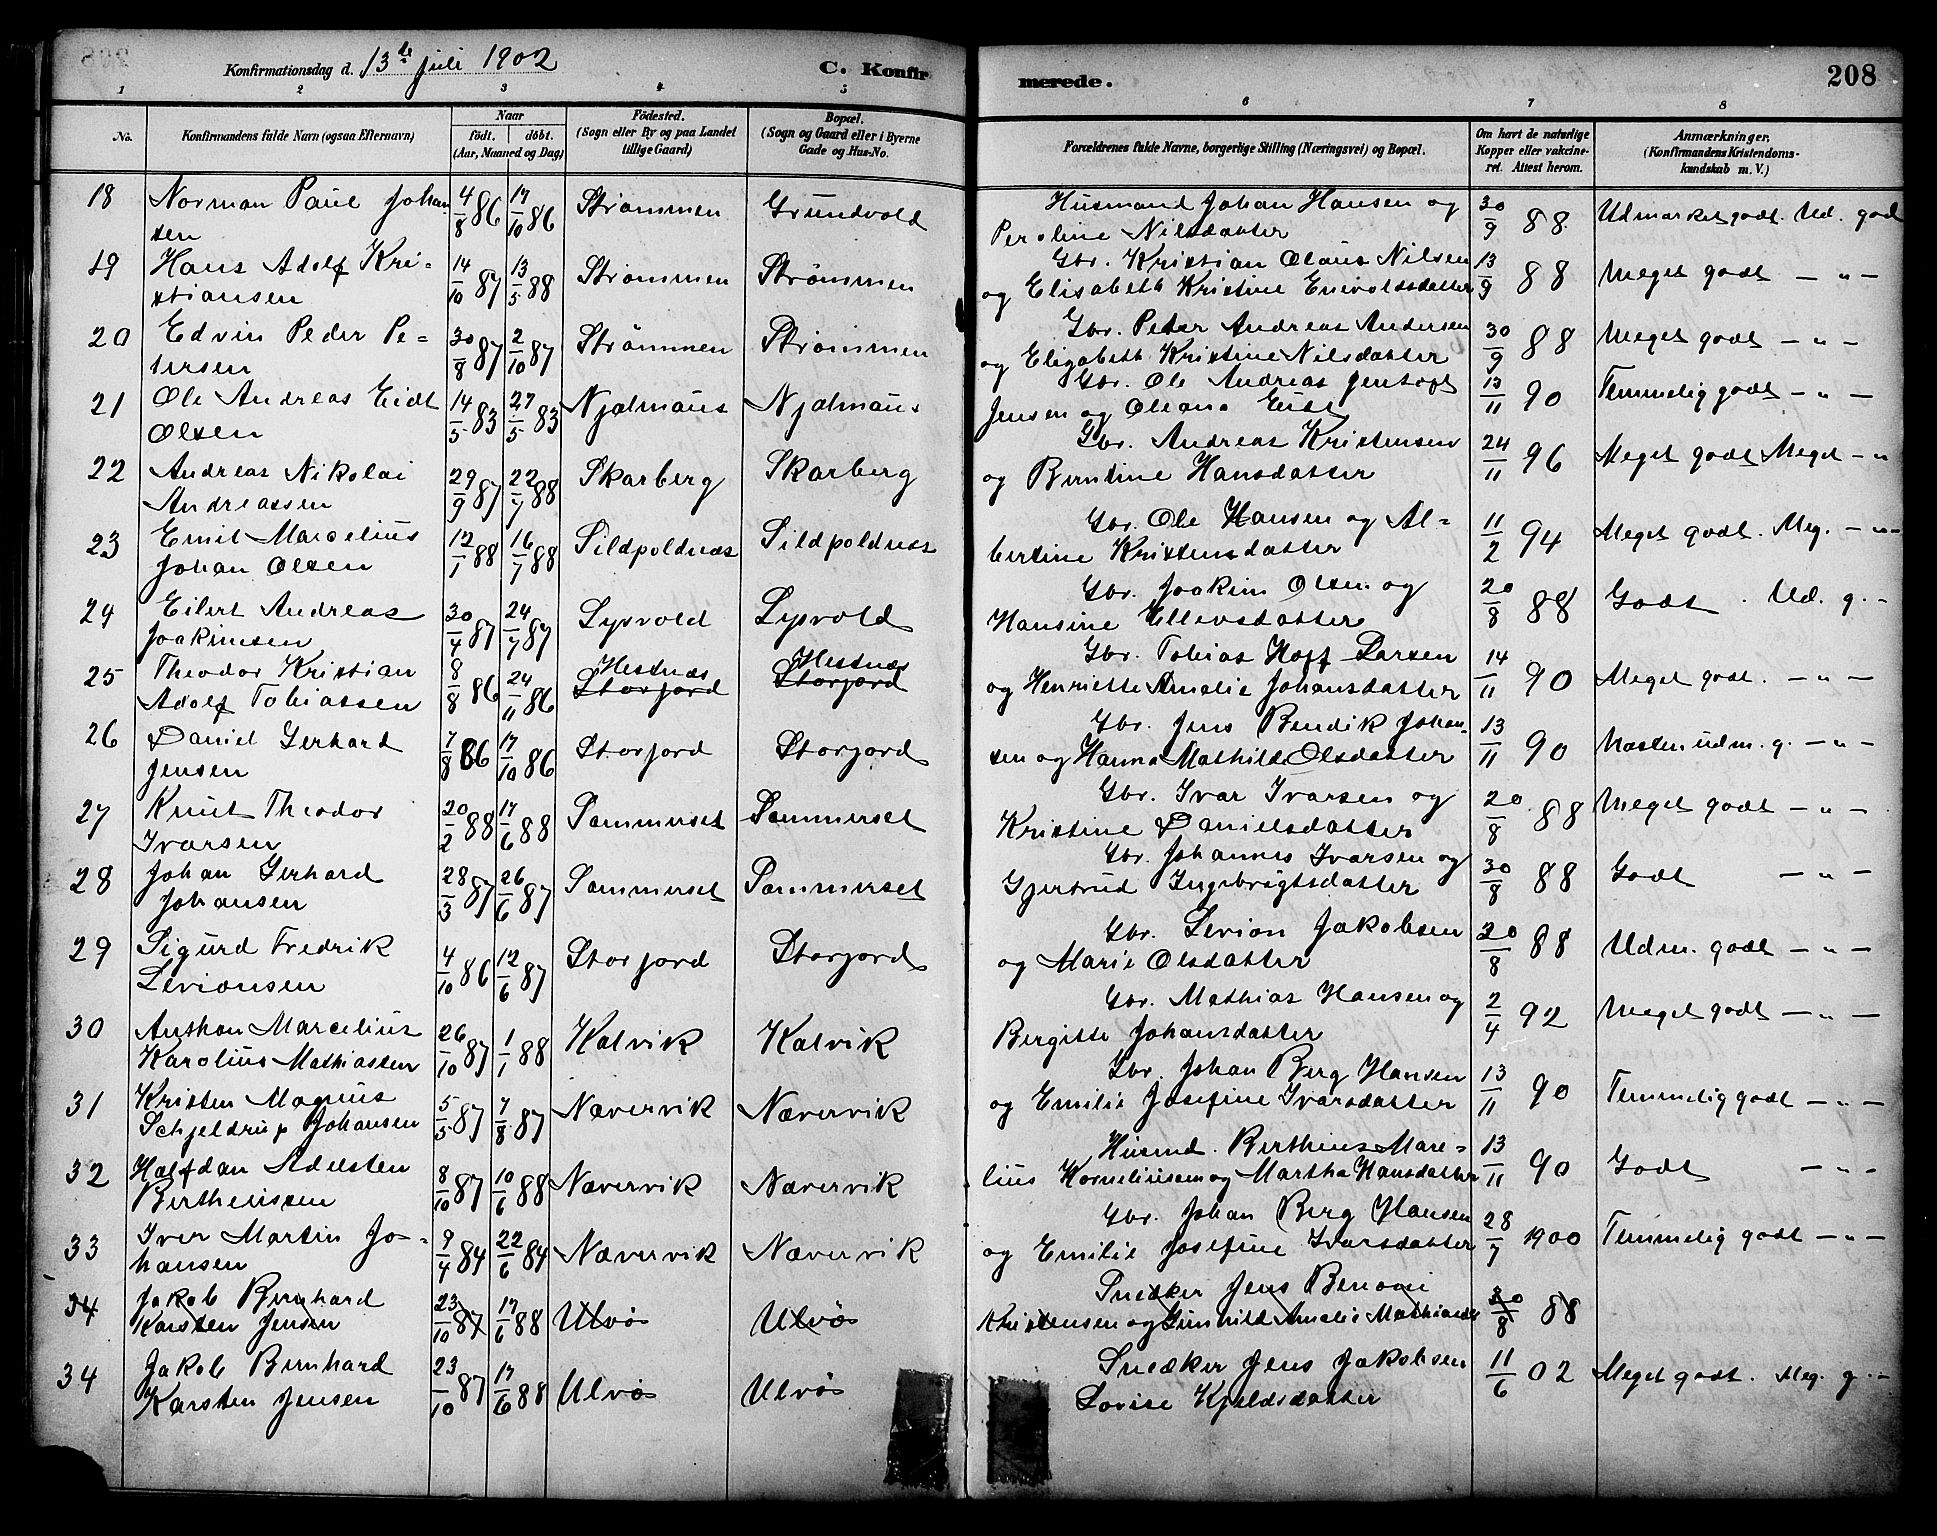 Konfirmationsdag d. 13de juli 1902 C. Konfirmerede. 208
1 2 3 4 5 6 7 8
No. Konfirmandens fulde Navn (ogsaa Efternavn) Naar født. døbt. (Aar, Maaned og Dag) Fødested. (Sogn eller By og paa Landet tillige Gaard) Bopæl. (Sogn og Gaard eller i Byerne Gade og Hus-No. Forældrenes fulde Navne, borgerlige Stilling (Næringsvei) og Bopæl. Om havt de naturlige Kopper eller vakcineret. Attest herom. Anmærkninger. (Konfirmandens Kristendomskundskab m. V.)
18 Norman Paul Johansen 4/8 86 17/10 86 Strømmen Grundvold Husmand Johan Hansen og Peroline Nilsdatter 30/9 88. Udmærket godt. Ud. godt
19 Hans Adolf Kristiansen 14/10 87 13/5 88 Strømmen Strømmen Gbr. Kristian Olaus Nilsen og Elisabeth Kristine Enevoldsdatter 13/9 88 Meget godt — " —
20 Edvin Peder Petersen 30/8 87 2/10 87 Strømmen Strømmen Gbr. Peter Andreas Andersen og Elisabeth Kristine Nilsdatter 30/9 88 Meget godt — " —
21 Ole Andreas Eidt Olsen 14/5 83 27/5 83 Njalmaus Njalmaus Gbr. Ole Andreas Jentoft Jensen og Oliana Eidt 13/11 90 Temmelig godt — " —
22 Andreas Nikolai Andreassen 29/9 87 22/7 88 Skarberg Skarberg Gbr. Andreas Kristensen og Berntine Hansdatter 24/11 96 Meget godt Meget — "
23 Emil Marcelius Johan Olsen 12/1 88 16/7 88 Sildpoldnæs Sildpoldnæs Gbr. Ole Hansen og Albertine Kristensdatter 11/2 94 Meget godt. Meg. — " —
24 Eilert Andreas Joakimsen 30/4 87 24/7 87 Lysvold Lysvold Gbr. Joakim Olsen og Hansine Ellevsdatter 20/8 88 Godt . Ud. g. -
25 Theodor Kristian Adolf Tobiassen 8/8 86 24/11 86 Hestnæs Storjord Hestnæs Storjord Gbr. Tobias Hoff Larsen og Henriette Amalie Johansdatter 14/11 90 Meget godt. — " —
26 Daniel Gerhard Jensen 7/8 86 17/10 86 Storjord Storjord Gbr. Jens Bendik Johansen og Hanna Mathilde Olsdatter 13/11 90 Næsten udm. g. — " —
27 Knut Theodor Ivarsen 20/2 88 17/6 88 Sommerset Sommerset Gbr. Ivar Ivarsen og Kristine Danielsdatter 20/8 88 Meget godt — " —
28 Johan Gerhard Johansen 28/3 87 26/6 87 Sommerset Sommerset Gbr. Johannes Ivarsen og Gjertrud Ingebrigtsdatter 30/8 88 Godt — " —
29 Sigurd Fredrik Levionsen 4/10 86 12/6 87 Storjord Storjord Gbr. Levion Jakobsen og Marie Olsdatter 20/8 88 Udm. godt — " —
30 Anthon Marcelius Karolius Mathiassen 26/10 87 1/1 88 Kalvik Kalvik Gbr. Mathias Hansen og Bergitte Johansdatter 2/4 92 Meget godt — " —
31 Kristen Magnus Schjeldrup Johansen 5/5 87 7/8 87 Nævervik Nævervik Gbr. Johan Berg Hansen og Emilie Josefine Ivarsdatter 13/11 90 Temmelig godt — " —
32 Halfdan Adelsten Bertheussen 8/10 87 10/6 88 Nævervik Nævervik Husmd. Bertheus Marelius Korneliussen og Martha Hansdatter 13/11 90 Godt — " —
33 Iver Martin Johansen 9/4 84 22/6 84 Nævervik Nævervik Gbr. Johan Berg Hansen og Emilie Josefine Ivarsdatter 28/7 1900 Temmelig godt — " —
34 Jakob Bernhard Karsten Jensen 23/10 87 17/6 88 Ulvø Ulvø Snedker Jens Benoni Kristensen og Gunhild Amalie Mathiasdr 20/8 88
34 Jakob Bernhard Karsten Jensen 23/10 87 17/6 88 Ulvø Ulvø Snedker Jens Jakobsen Lovise Kjeldsdatter 11/6 02 Meget godt. Meg. g. -